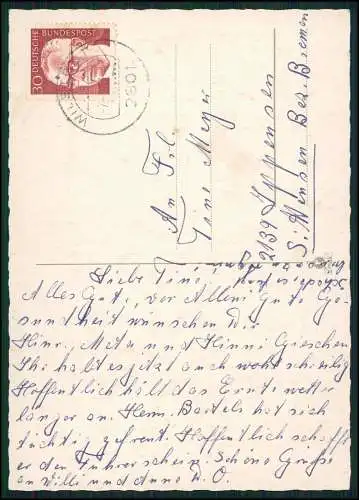 DEUTSCHE BUNDESPOST
30
2801
An Frl.
Tine Meyer
2139 Ippensen
Liebe Tine!
Alles Gute, vor Allem gute Ge-
sundheit wünschen Dir
Hinr., Meta und Hinni Gieschen
Ihr habt es jetzt auch wohl
Hoffentlich hält das Erntewetter
länger an. Herm. Bartels hat sich
tüchtig gefreut. Hoffentlich schafft
er den Führerschein. Schöne Grüße
an Willi und Anne u. O.